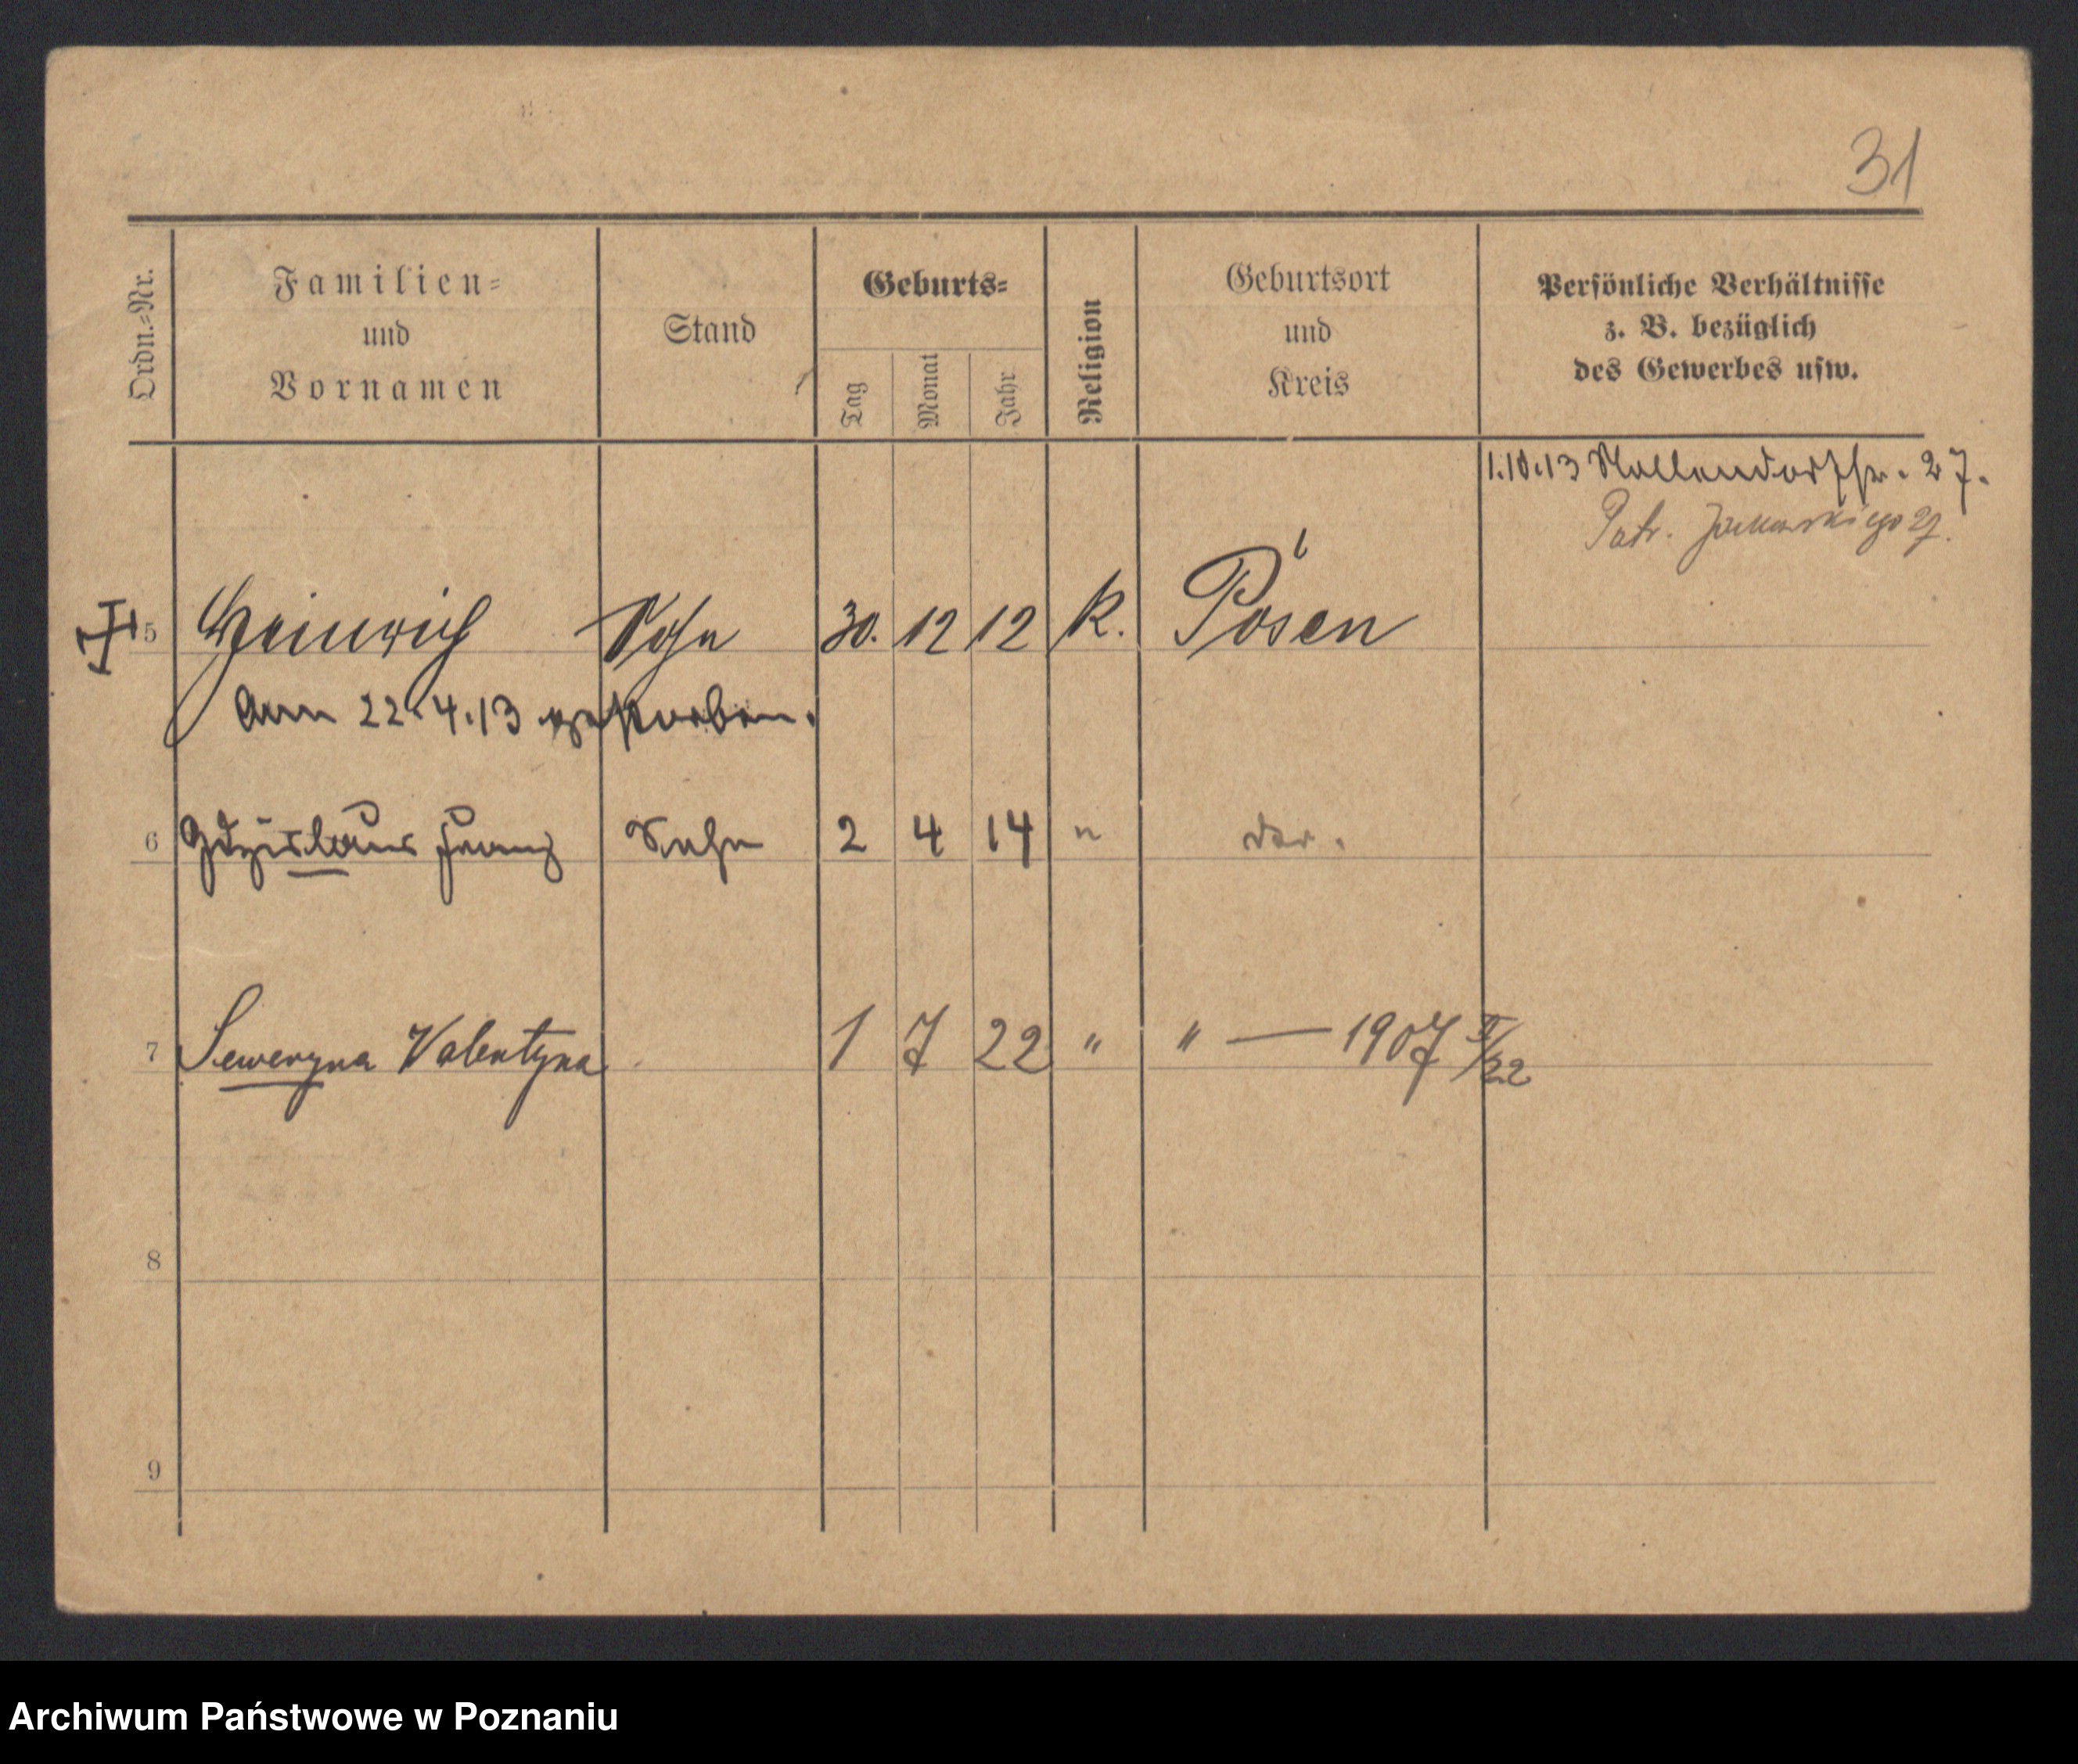 31
Ordn.=Nr.
Familien=
und
Vornamen
Stand
Geburts=
Tag
Monat
Jahr
Religion
Geburtsort
und
Kreis
Persönliche Verhältnisse
z. B. bezüglich
des Gewerbes usw.
1.10.13 Mollendorfstr. 27.
Patr. Jackowskiego 27.
5 Heinrich Sohn 30. 12 12 K. Posen
am 22.4.13 gestorben.
6 Zdzislaus Franz Sohn 2 4 14 " dar.
7 Seweryna Valentyna 1 7 22 " " — 1907 V/22
8
9
Archiwum Państwowe w Poznaniu